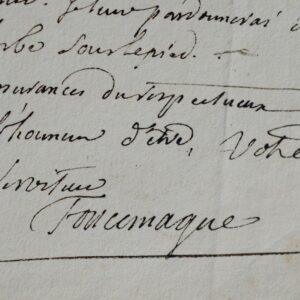 pardonnerai
sur le pied. —
surances du respectueux
l'honneur d'être, Votre
Serviteur
Foncemagne